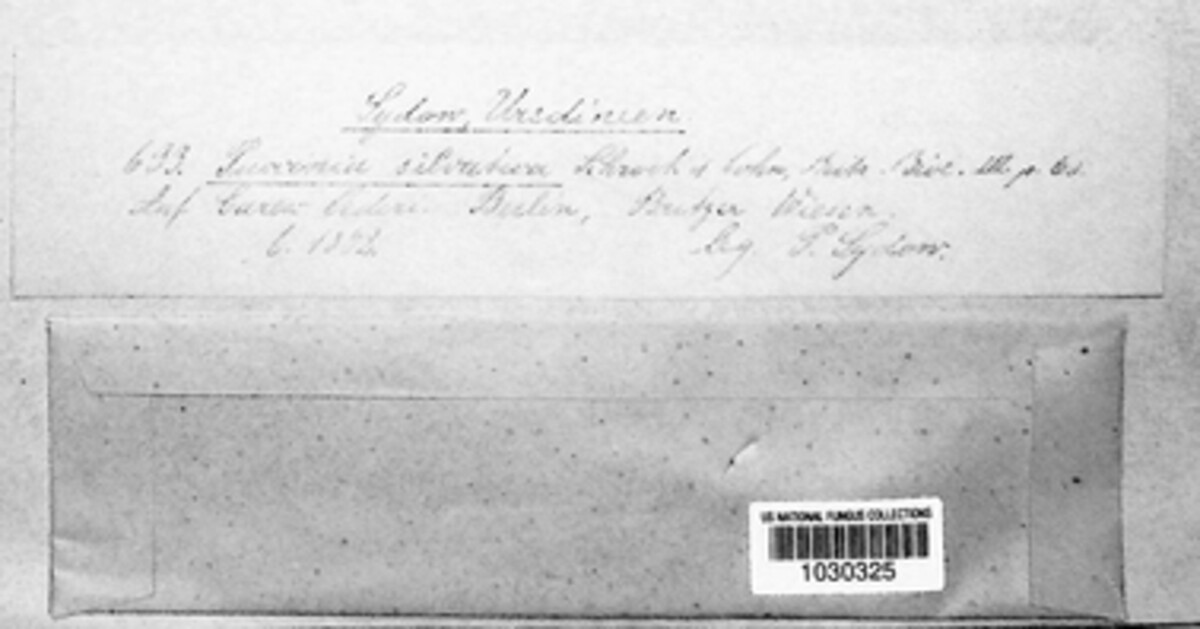 Sydow, Uredineen
633. Puccinia silvatica Schroet. Cohn, Beitr. Biol. III p. 68
Auf Carex Berlin, Britzer Wiesen.
6. 1892 Leg. P. Sydow.
US NATIONAL FUNGUS COLLECTIONS
1030325